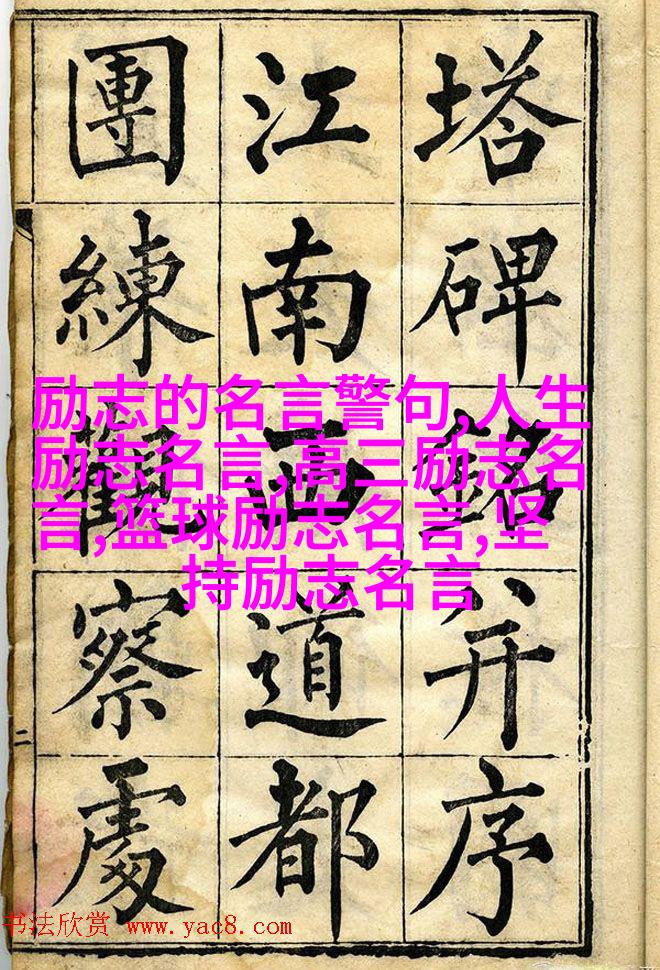 塔碑銘并序
江南西道都
團練觀察處
二
励志的名言警句,人生
励志名言,高三励志名
言,篮球励志名言,坚
持励志名言
书法欣赏 www.yac8.com